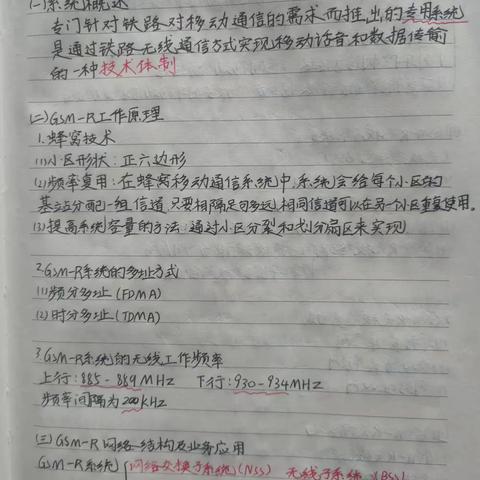 (一)系统概述
专门针对铁路对移动通信的需求而推出的专用系统
是通过铁路无线通信方式实现移动话音和数据传输
的一种技术体制
(二)GSM-R工作原理
1.蜂窝技术
(1)小区形状:正六边形
(2)频率复用:在蜂窝移动通信系统中,系统会给每个小区的
基站分配一组信道,只要相隔足够远,相同信道可以在另一个小区重复使用。
(3)提高系统容量的方法:通过小区分裂和划分扇区来实现
2.GSM-R系统的多址方式
(1)频分多址(FDMA)
(2)时分多址(TDMA)
3.GSM-R系统的无线工作频率
上行:885-889MHZ 下行:930-934MHZ
频率间隔为200KHZ
(三)GSM-R网络结构及业务应用
GSM-R系统 网络交换子系统(NSS) 无线子系统(BSS)